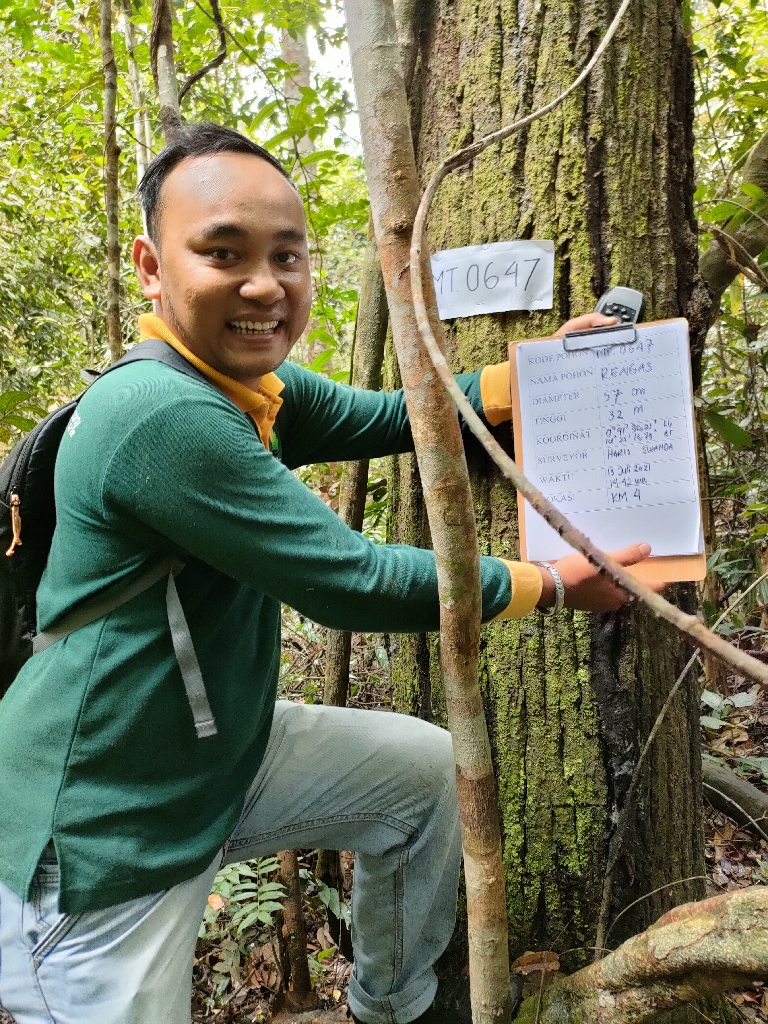 MT 0647
KODE POHON MT 0647
NAMA POHON RENGAS
DIAMETER 57 cm
TINGGI 32 m
KOORDINAT
SURVEYOR HARIS SWANDA
WAKTU 13 Juli 2021
14:42 WIB
LOKASI KM 4